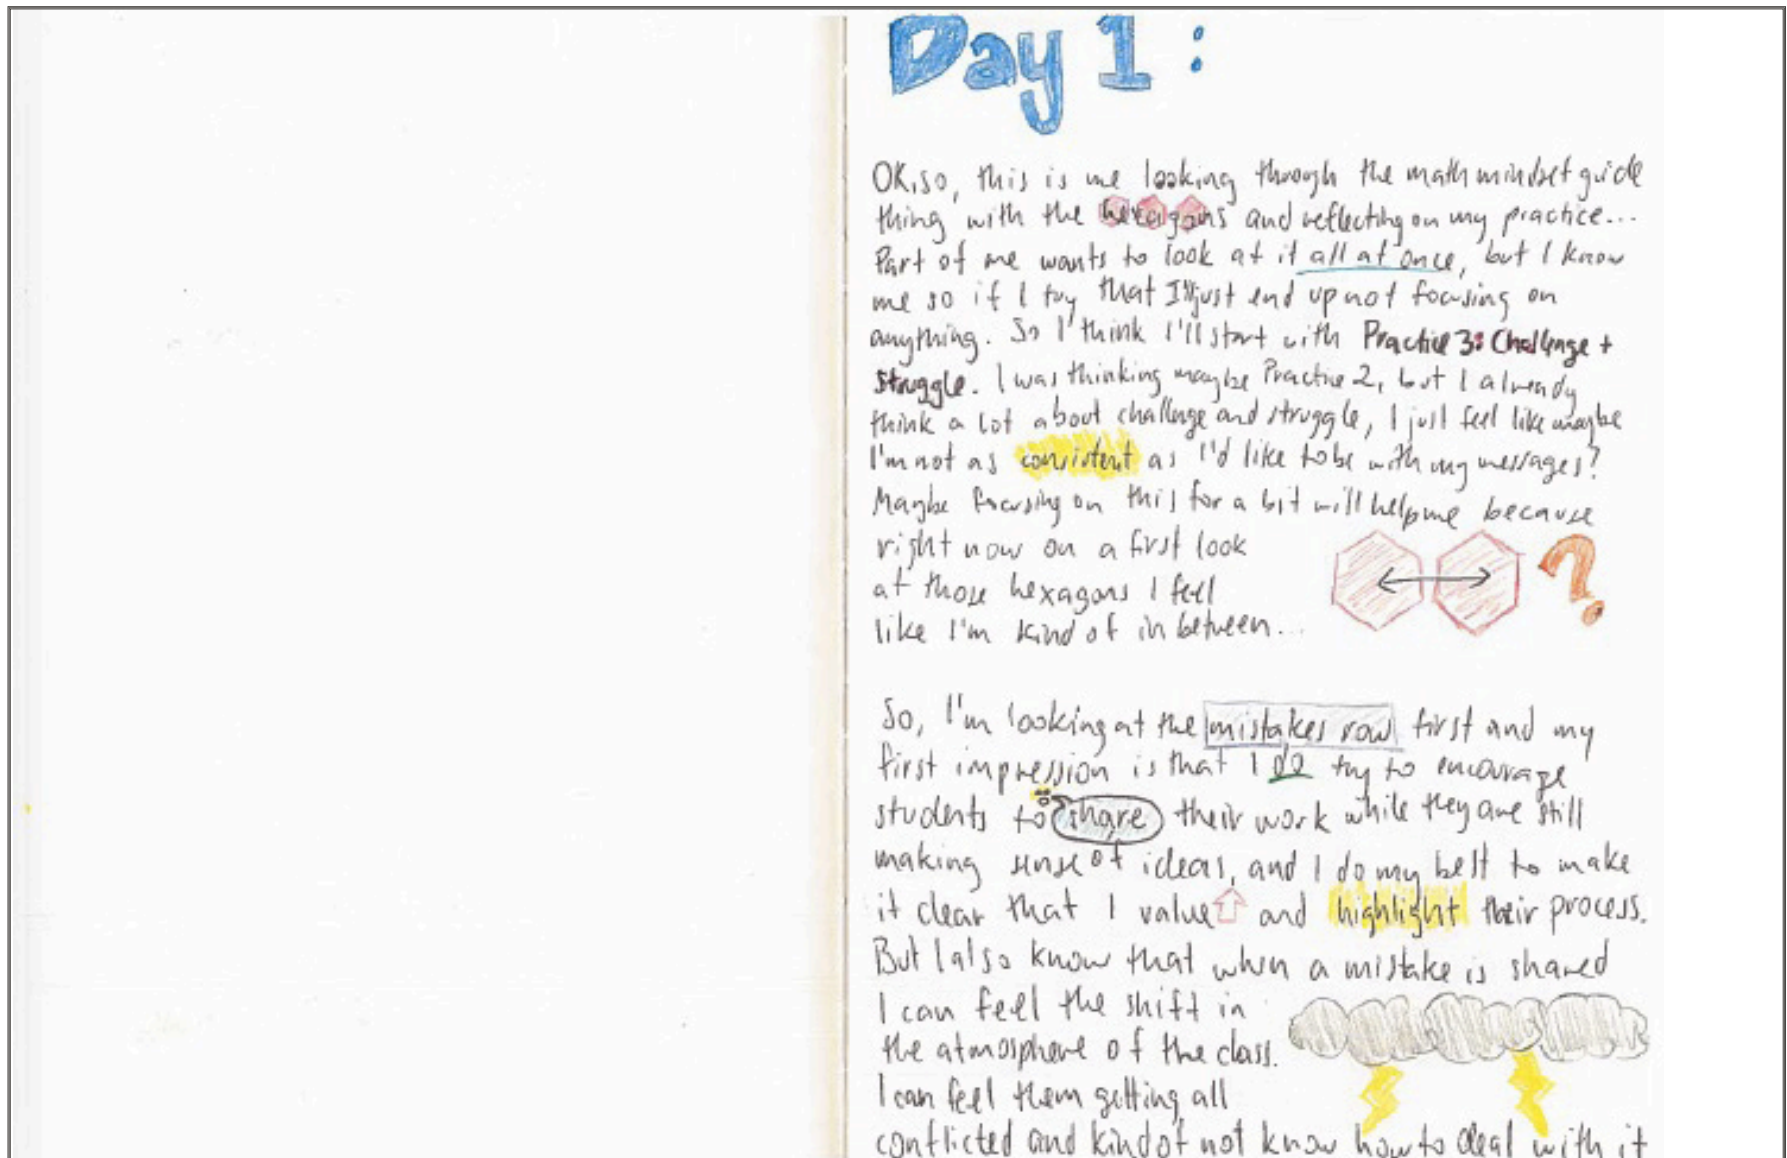 Day 1:
OK, so, this is me looking through the math mindset guide
thing with the hexagons and reflecting on my practice...
Part of me wants to look at it all at once, but I know
me so if I try that I'll just end up not focusing on
anything. So I think I'll start with Practice 3: Challenge +
Struggle. I was thinking maybe Practice 2, but I already
think a lot about challenge and struggle, I just feel like maybe
I'm not as consistent as I'd like to be with my messages?
Maybe focusing on this for a bit will help me because
right now on a first look
at those hexagons I feel
like I'm kind of in between...
?
So, I'm looking at the mistakes row first and my
first impression is that I do try to encourage
students to share their work while they are still
making sense of ideas, and I do my best to make
it clear that I value and highlight their process.
But I also know that when a mistake is shared
I can feel the shift in
the atmosphere of the class.
I can feel them getting all
conflicted and kind of not know how to deal with it